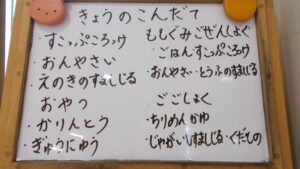 きょうのこんだて
すこっぷころっけ
・おんやさい
・えのきのすましじる
おやつ
・かりんとう
・ぎゅうにゅう
ももぐみごぜんしょく
・ごはん・すこっぷころっけ
・おんやさい・とうふのすましる
ごごしょく
・ちりめんかゆ
・じゃがいしましじる・くだもの